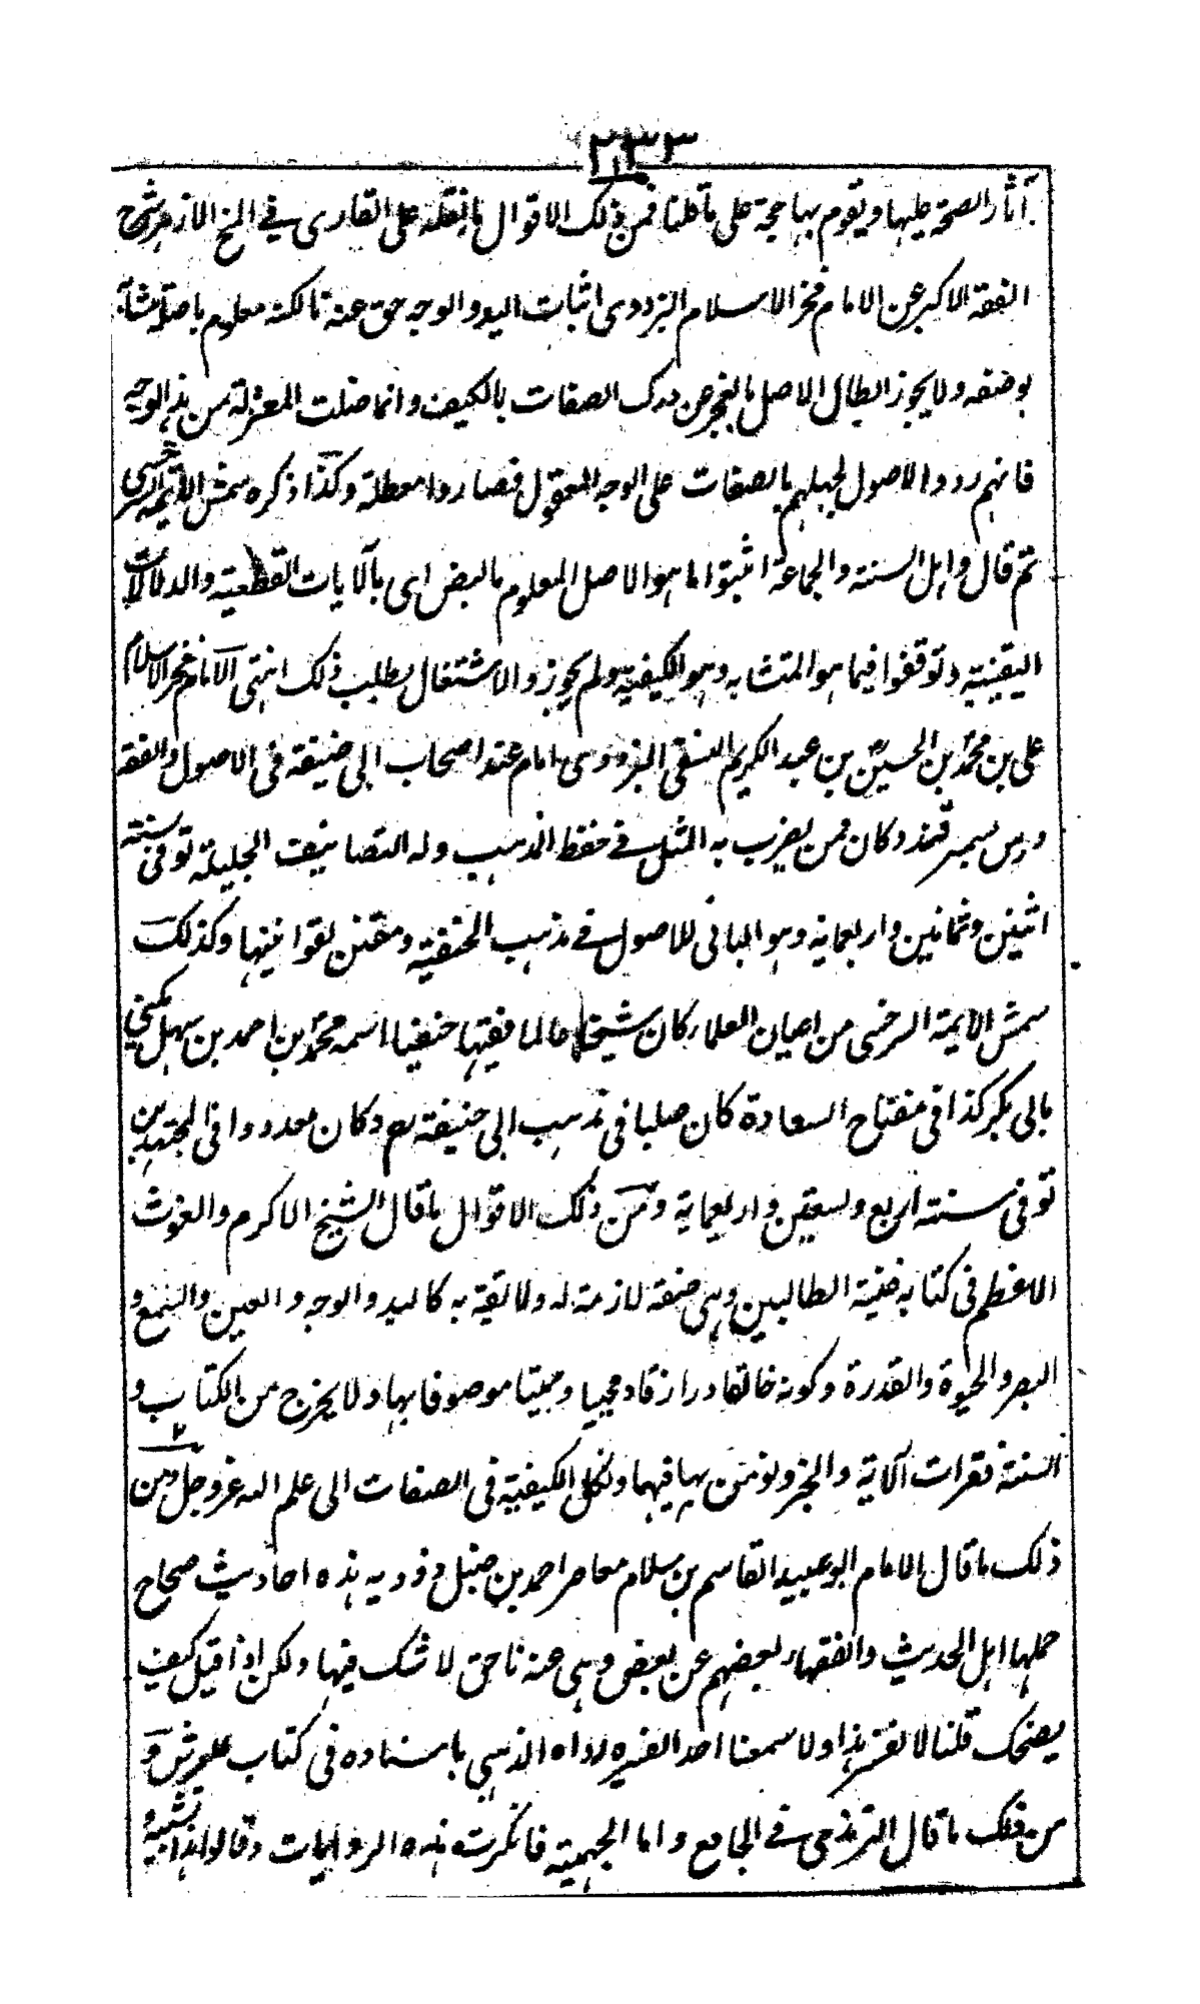 ٢٣٣
آثار الصحة عليها ويقوم بها حجة على ما قلنا فمن ذلك الاقوال ما نقله على القارى فى المنح الازهر شرح
الفقه الاكبر عن الامام فخر الاسلام البزدوى اثبات اليد والوجه حق عندنا لكنه معلوم باصله متشابه
بوصفه ولا يجوز ابطال الاصل بالعجز عن درك الصفات بالكيف وانما ضلت المعتزلة من هذا الوجه
فانهم ردوا الاصول لجهلهم بالصفات على الوجه المعقول فصاروا معطلة وكذا ذكره شمس الايمة السرخسى
ثم قال واهل السنة والجماعة اثبتوا ما هو الاصل المعلوم بالنص اى بالآيات القطعية والدلالات
اليقينية وتوقفوا فيما هو المتشابه وهو الكيفية ولم يجوزوا الاشتغال بطلب ذلك انتهى الامام فخر الاسلام
على بن محمد بن الحسين بن عبد الكريم النسفى البزدوى امام عند اصحاب ابى حنيفة فى الاصول والفقه
درس بسمرقند وكان ممن يضرب به المثل فى حفظ المذهب وله التصانيف الجليلة توفى سنة
اثنين وثمانين واربعماية وهو البانى للاصول فى مذهب الحنفية ومقنن لقوانينها وكذلك
شمس الايمة السرخسى من اعيان العلماء كان شيخا عالما فقيها حنفيا اسمه محمد بن احمد بن سهل يكنى
بابى بكر كذا فى مفتاح السعادة كان صلبا فى مذهب ابى حنيفة رح وكان معدودا فى المجتهدين
توفى سنة اربع وتسعين واربعماية ومن ذلك الاقوال ما قال الشيخ الاكرم والغوث
الاعظم فى كتابه غنية الطالبين وهى صفة لازمة له ولائقة به كاليد والوجه والعين والسمع و
البصر والحيوة والقدرة وكونه خالقا ورازقا ومحييا ومميتا موصوفا بها ولا يخرج من الكتاب و
السنة نقرات الآية والخبر ونؤمن بما فيهما ونكل الكيفية فى الصفات الى علم الله عز وجل ومن
ذلك ما قال الامام ابو عبيد القاسم بن سلام معاصر احمد بن حنبل وذويه هذه احاديث صحاح
حملها اهل الحديث والفقهاء بعضهم عن بعض وهى عندنا حق لا شك فيها ولكن اذا قيل كيف
يضحك قلنا لا نفسر هذا ولا سمعنا احدا يفسره رواه الذهبى باسناده فى كتاب علو عرش و
من ذلك ما قال الترمذى فى الجامع واما الجهمية فانكرت هذه الروايات وقالوا هذا تشبيه و